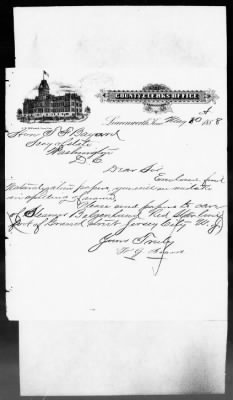 COUNTY CLERKS OFFICE
Leavenworth, Kan. May 1888
Hon T F Bayard
Secy of State
Washington
D C
Dear Sir
Enclosed find
Naturalization papers, you will
in
Please send papers to care
of Steamer Belgenland Red Star Line
foot of Grand Street Jersey City N. J.
Yours Truly